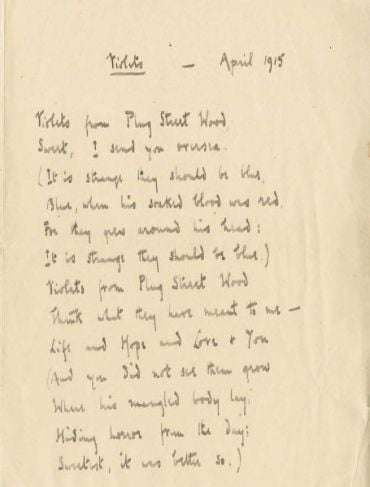 Violets — April 1915
Violets from Plug Street Wood,
Sweet, I send you oversea.
(It is strange they should be blue,
Blue, when his soaked blood was red,
For they grew around his head:
It is strange they should be blue.)
Violets from Plug Street Wood
Think what they have meant to me —
Life and Hope and Love & You
(And you did not see them grow
Where his mangled body lay,
Hiding horror from the day;
Sweetest, it was better so.)